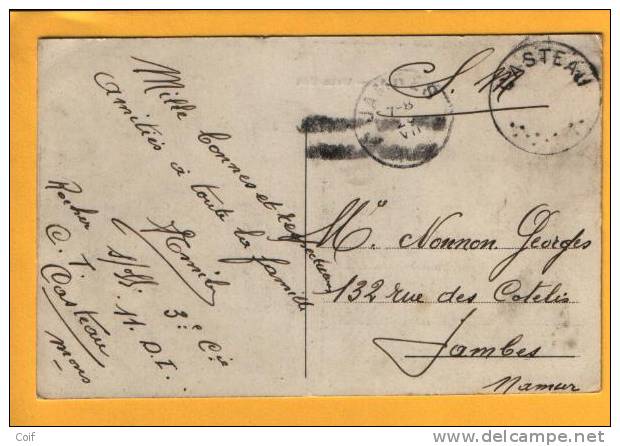 Mille bonnes et respectueuses
amitiés à toute la famille
Emile
Rocher s/off. 3e Cie
C. T. 11. D. I.
Casteau
Mons
S. M
CASTEAU
JAMBES
Mr. Nonnon Georges
132 rue des Cotelis
Jambes
Namur
Coif
www.delcampe.net